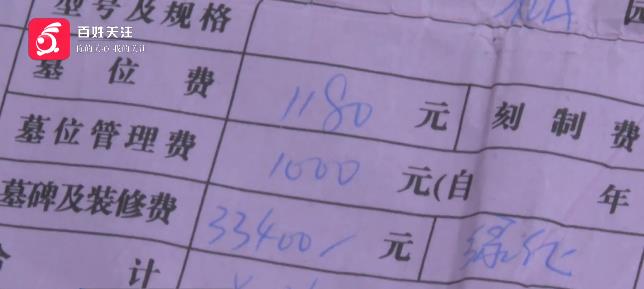 型号及规格
百姓关注
你的关心 我的关注
墓位费 1180 元 刻制费
墓位管理费 1000 元(自 年
墓碑及装修费 33400 元 绿化
合计